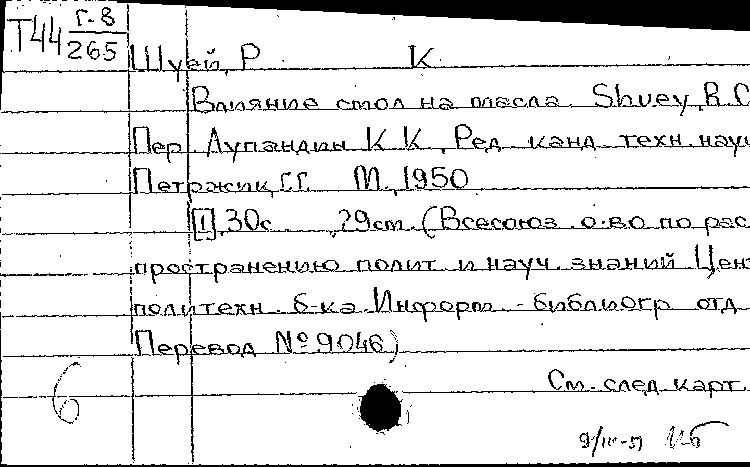 Т44 Г-8
265
Шуей, Р К
Влияние смол на масла. Shuey, R.C
Пер. Лупандин К К, Ред. канд. техн. наук
Петржик, Г.Г. М., 1950
[1], 30с. , 29см. (Всесоюз. о-во по рас
пространению полит. и науч. знаний Цен
политехн. б-ка Информ.-библиогр отд
Перевод №9046)
См. след. карт.
6
9/IV-51